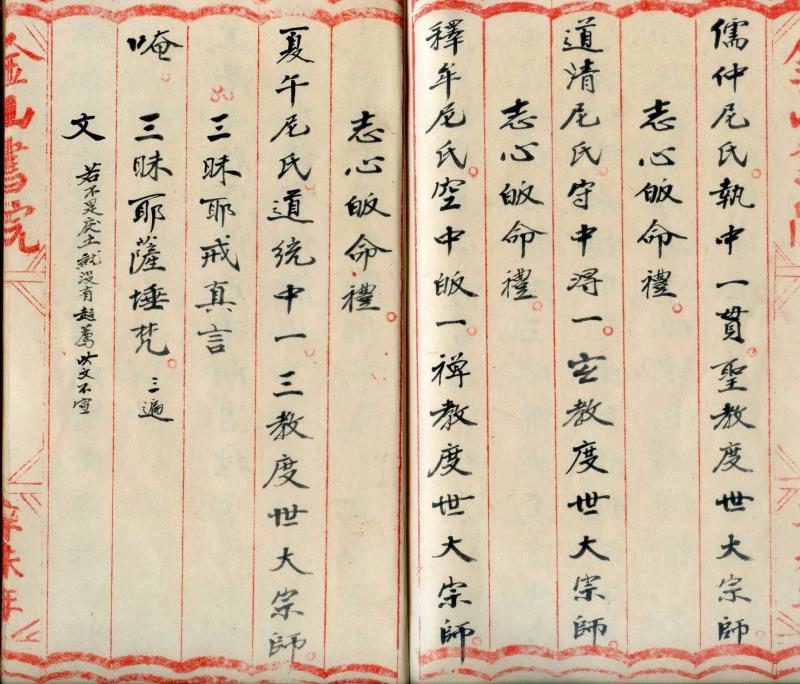 儒仲尼氏。執中一貫聖教度世大宗師
志心皈命禮。
道清尼氏。守中得一玄教度世大宗師。
志心皈命禮。
釋牟尼氏。空中皈一禪教度世大宗師。
志心皈命禮。
夏午尼氏道統中一三教度世大宗師。
三昧耶戒真言
唵。三昧耶薩埵梵。三遍
文 若不是庚土就没有超薦此文不宣
金山書院
辛未年